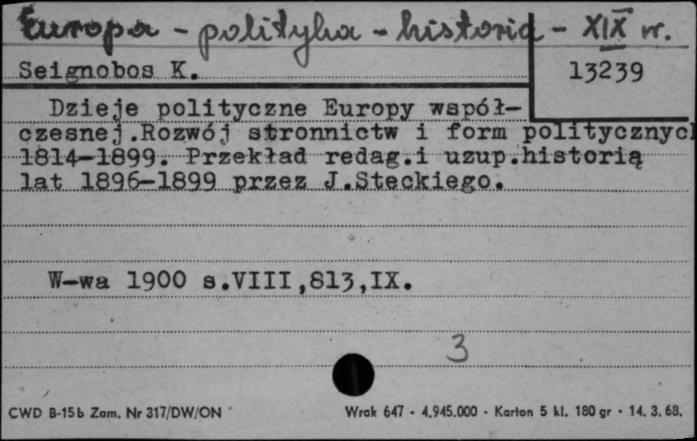 Europa - polityka - historia - XIX w.
Seignobos K. 13239
Dzieje polityczne Europy współ-
czesnej.Rozwój stronnictw i form politycznyc
1814-1899. Przekład redag.i uzup.historią
lat 1896-1899 przez J.Steckiego.
W-wa 1900 s.VIII,813,IX.
3
CWD B-15b Zam. Nr 317/DW/ON Wrak 647 - 4.945.000 - Karton 5 kl. 180 gr - 14. 3. 68.